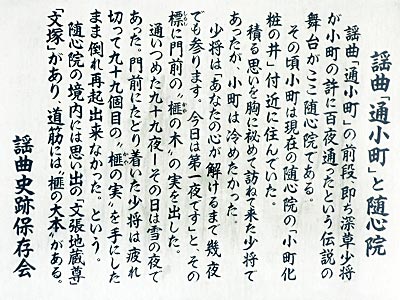 謡曲「通小町」と随心院
謡曲「通小町」の前段、即ち深草少将
が小町の許に百夜通ったという伝説の
舞台がここ随心院である。
その頃小町は現在の随心院の「小町化
粧の井」付近に住んでいた。
積る思いを胸に秘めて訪ねて来た少将で
あったが、小町は冷めたかった。
少将は「あなたの心が解けるまで幾夜
でも参ります。今日は第一夜です」と、その
標に門前の〝榧の木〟の実を出した。
しるし
かや
通いつめた九十九夜ーその日は雪の夜で
あった。門前にたどり着いた少将は疲れ
切って九十九個目の〝榧の実〟を手にした
まま倒れ再起出来なかった。という。
随心院の境内には思い出の「文張地蔵尊」
「文塚」があり、道筋には〝榧の大木〟がある。
謡曲史跡保存会